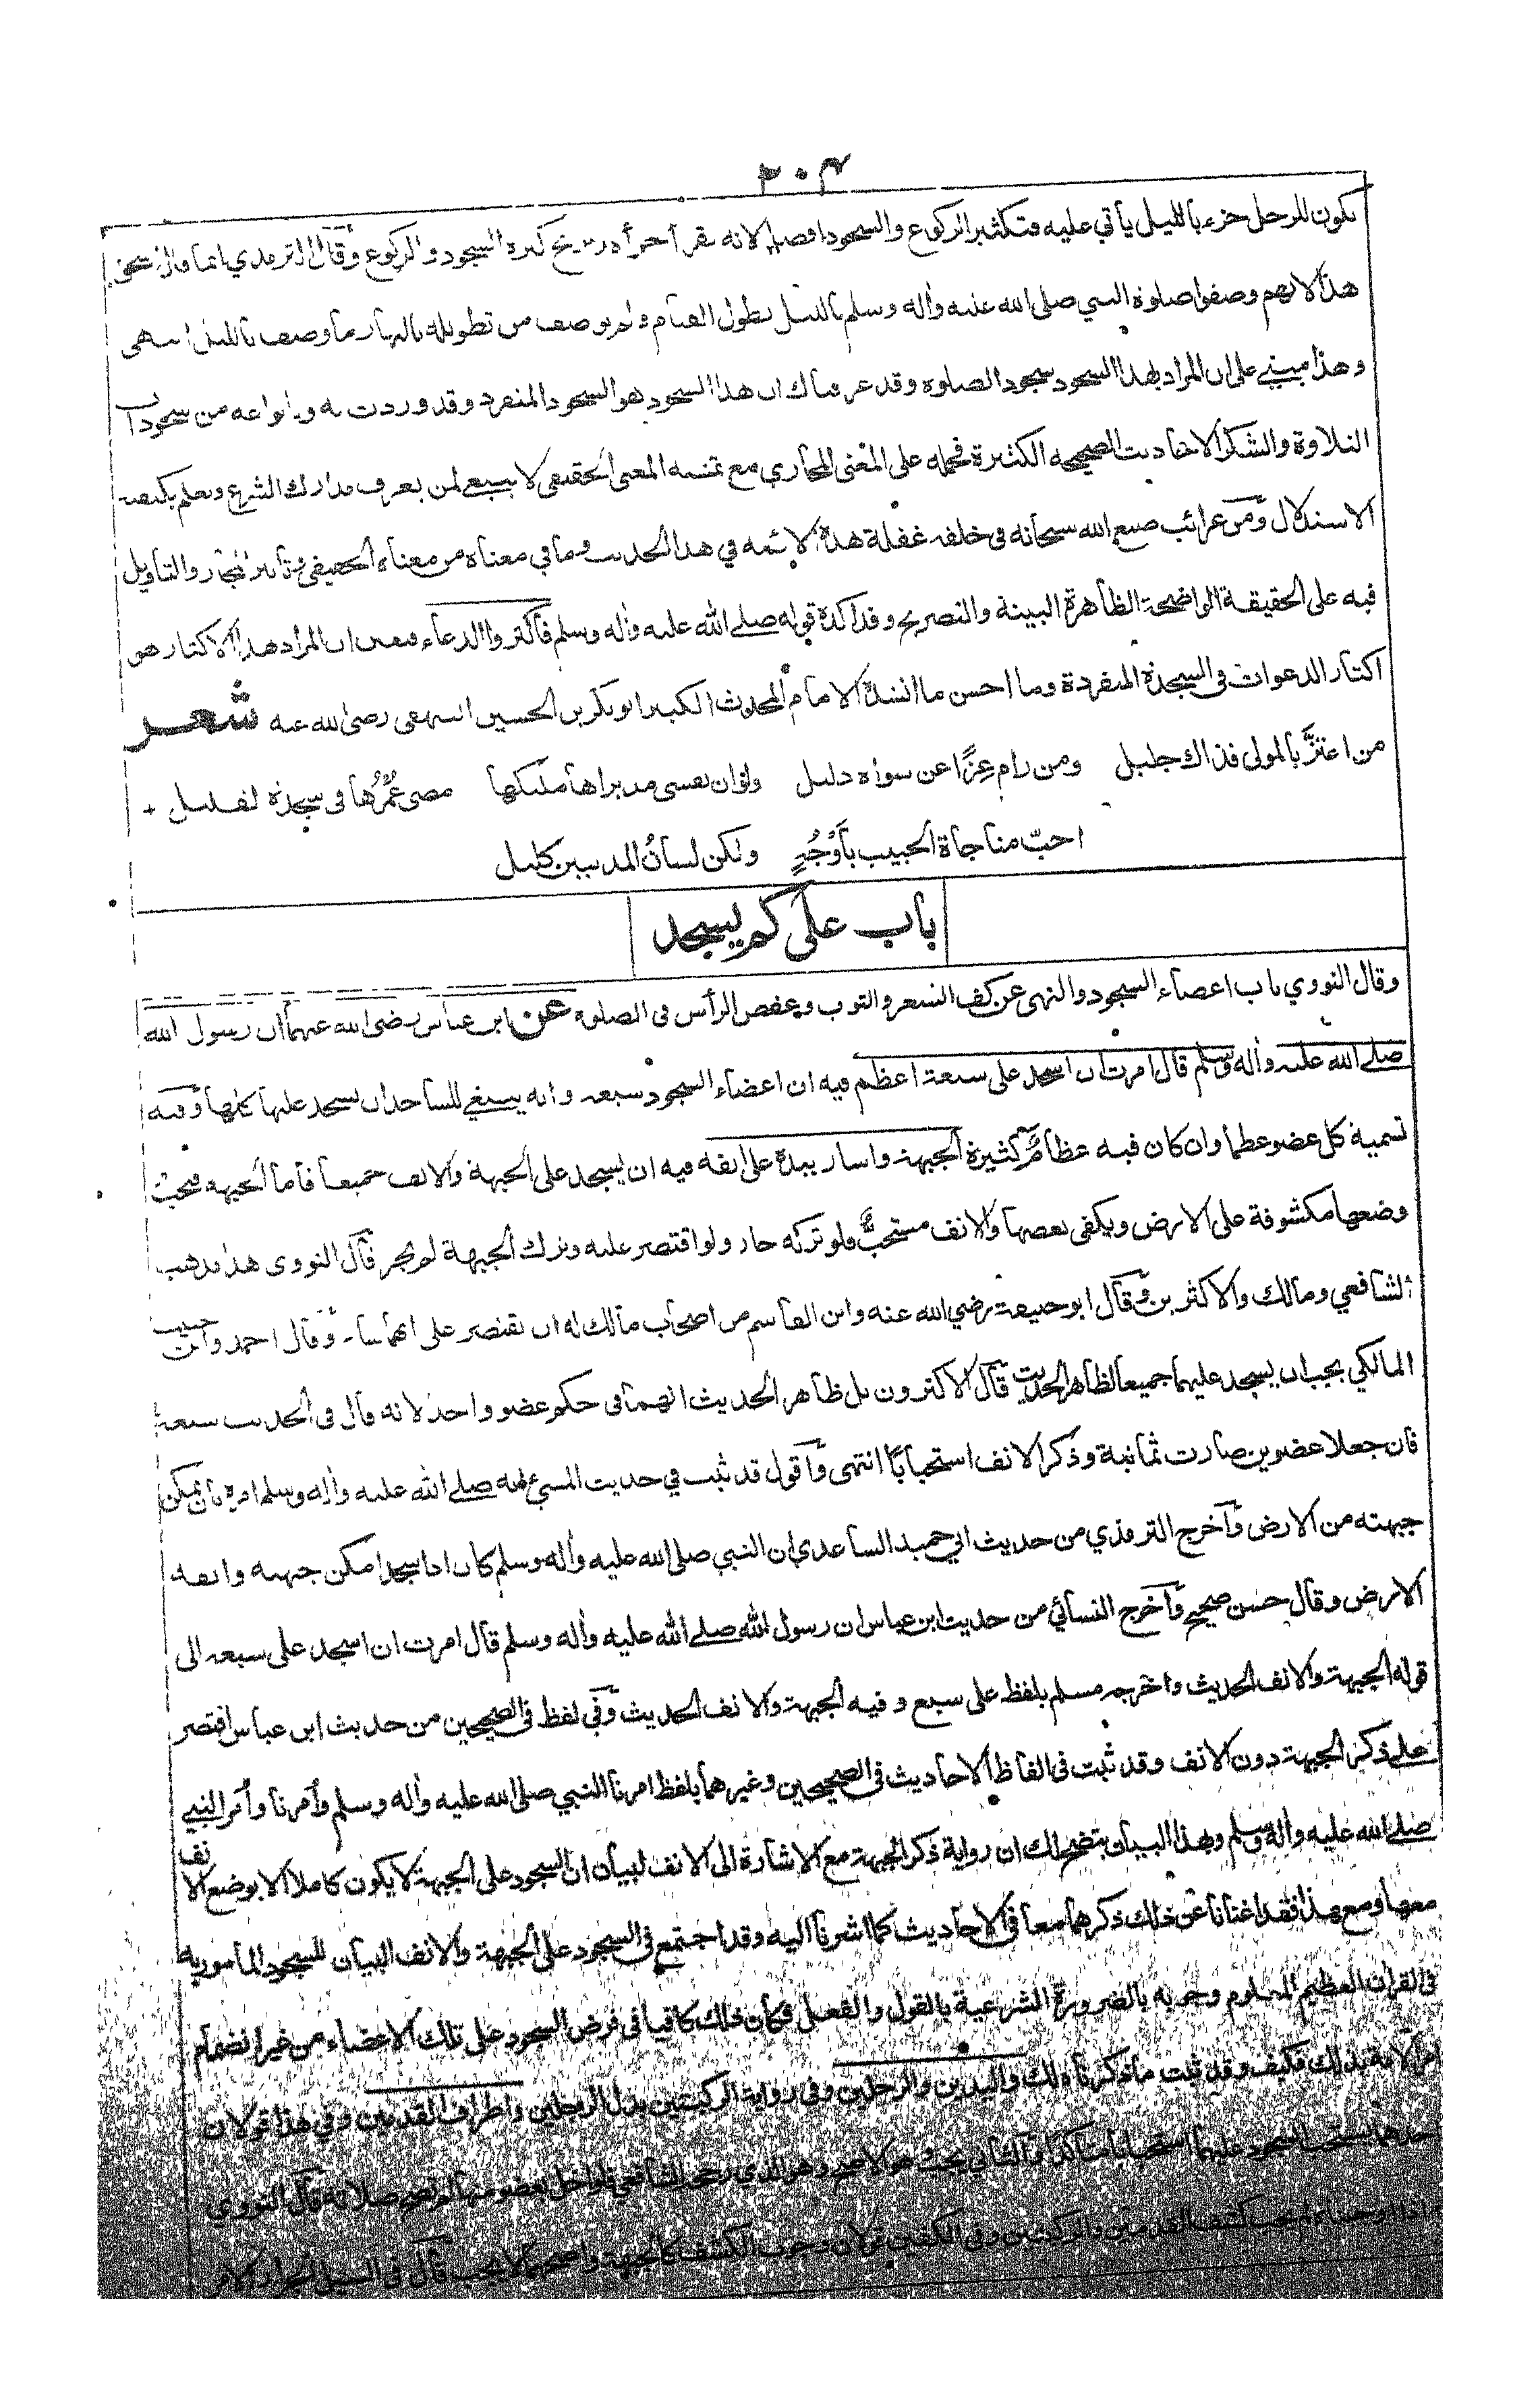 ٢٠٤
يكون للرجل جزء بالليل يأتي عليه فتكثير الركوع والسجود افضل لانه يقرأ جزأه ويربح كثرة السجود والركوع وقال الترمذي انما قال اسحق
هذا لانهم وصفوا صلوة النبي صلى الله عليه واله وسلم بالليل بطول القيام ولم يوصف من تطويله بالنهار ما وصف بالليل انتهى
وهذا مبني على ان المراد بهذا السجود سجود الصلوة وقد عرفناك ان هذا السجود هو السجود المنفرد وقد وردت به وبانواعه من سجودات
التلاوة والشكر الاحاديث الصحيحة الكثيرة فحمله على المعنى المجازي مع تمشية المعنى الحقيقي لا ينبغي لمن يعرف مدارك الشرع ويعلم بكيفية
الاستدلال ومن غرائب صنع الله سبحانه في خلقه غفلة هذه الائمة في هذا الحديث وما في معناه من معناه الحقيقي وتأثير المجاز والتاويل
فيه على الحقيقة الواضحة الظاهرة البينة والتصريح وقد اكده قوله صلى الله عليه واله وسلم فأكثروا الدعاء فتعين ان المراد بهذا الاكثار هو
اكثار الدعوات في السجدة المنفردة وما احسن ما انشده الامام المحدث الكبير ابو بكر بن الحسين البيهقي رضى الله عنه شعر
من اعتزّ بالمولى فذاك جليل ومن رام عِزًّا عن سواه ذليل ولو ان نفسي مذ براها مليكها مضى عُمْرُها في سجدة لقليل
احبّ مناجاة الحبيب بأَوْجُهٍ ولكن لسانُ المذنبين كليل
باب على كم يسجد
وقال النووي باب اعضاء السجود والنهى عن كف الشعر والثوب وعقص الرأس في الصلوة عن ابن عباس رضى الله عنهما ان رسول الله
صلى الله عليه واله وسلم قال امرت ان اسجد على سبعة اعظم فيه ان اعضاء السجود سبعة وانه ينبغي للساجد ان يسجد عليها كلها وفيه
تسمية كل عضو عظما وان كان فيه عظام كثيرة الجبهة واشار بيده على انفه فيه ان يسجد على الجبهة والانف جميعا فأما الجبهة فيجب
وضعها مكشوفة على الارض ويكفى بعضها والانف مستحبٌّ فلو تركه جاز ولو اقتصر عليه وترك الجبهة لم يجز قال النووى هذا مذهب
الشافعي ومالك والاكثرين وقال ابو حنيفة رضي الله عنه وابن القاسم من اصحاب مالك له ان يقتصر على ايهما شاء وقال احمد وابن حبيب
المالكي يجب ان يسجد عليهما جميعا لظاهر الحديث قال الاكثرون بل ظاهر الحديث انهما في حكم عضو واحد لانه قال في الحديث سبعة
فان جعلا عضوين صارت ثمانية وذكر الانف استحبابًا انتهى وأقول قد ثبت في حديث المسئ انه صلى الله عليه واله وسلم امره بأن يمكن
جبهته من الارض وأخرج الترمذي من حديث ابي حميد الساعدي ان النبي صلى الله عليه واله وسلم كان اذا سجد امكن جبهته وانفه
الارض وقال حسن صحيح وأخرج النسائي من حديث ابن عباس ان رسول الله صلى الله عليه واله وسلم قال امرت ان اسجد على سبعة الى
قوله الجبهة والانف الحديث واخرجه مسلم بلفظ على سبع وفيه الجبهة والانف الحديث وفي لفظ في الصحيحين من حديث ابن عباس اقتصر
على ذكر الجبهة دون الانف وقد ثبت في الفاظ الاحاديث في الصحيحين وغيرهما بلفظ امرنا النبي صلى الله عليه واله وسلم وأمرنا وأمر النبي
صلى الله عليه واله وسلم وبهذا البيان يتضح لك ان رواية ذكر الجبهة مع الاشارة الى الانف لبيان ان السجود على الجبهة لا يكون كاملا الا بوضع الانف
معها ومع هذا فقد اغنانا عن ذلك ذكرهما معا في الاحاديث كما اشرنا اليه وقد اجتمع في السجود على الجبهة والانف البيان للسجود المأمور به
في القرآن العظيم المعلوم وجوبه بالضرورة الشرعية بالقول والفعل فكان ذلك كافيا في فرض السجود على تلك الاعضاء من غير انضمام
امر الامة بذلك فكيف وقد ثبت ما ذكرنا ذلك واليدين والرجلين وفي رواية الركبتين بدل الرجلين واطراف القدمين وفي هذا قولان
احدهما يستحب السجود عليهما استحبابا متأكدا والثاني يجب هو الاصح وهو الذي رجحه الشافعي فلو اخل بعضو منها لم تصح صلاته قال النووي
واذا اوجبناه لم يجب كشف القدمين والركبتين وفي الكفين قولان وجوب الكشف كالجبهة واصحهما لا يجب قال في السيل الجرار